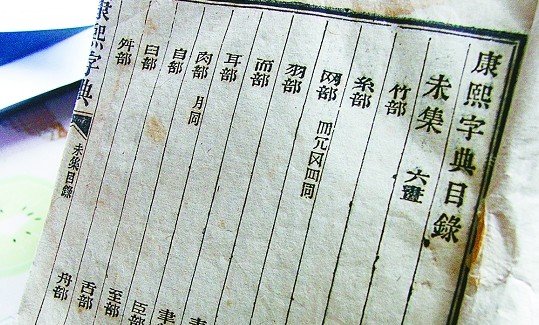 康熙字典目錄
未集 六畫
竹部
糸部
网部 冈 同
羽部
而部
耳部 聿
肉部 月同 臣部
自部 至部
臼部 舌部
舛部 舟部
康熙字典 未集目錄